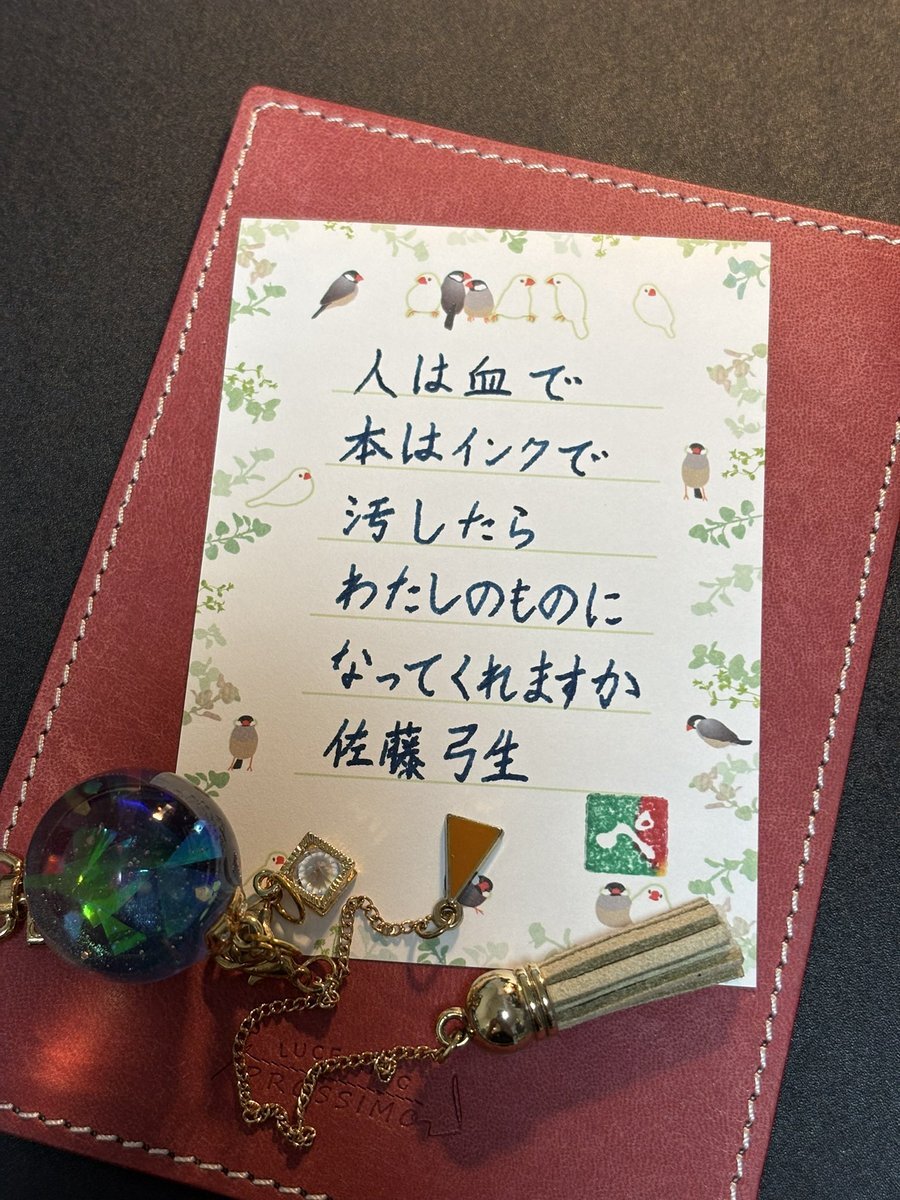 人は血で
本はインクで
汚したら
わたしのものに
なってくれますか
佐藤 弓生
PROSSIMO